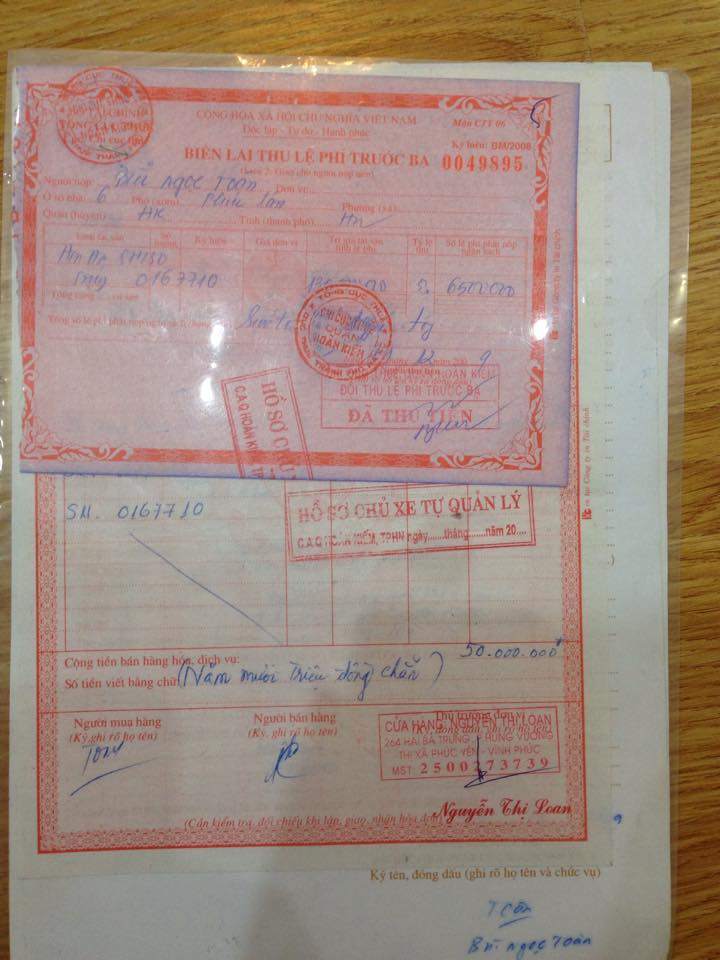 CỘNG HÒA XÃ HỘI CHỦ NGHĨA VIỆT NAM
Mẫu CTT 06
Độc lập - Tự do - Hạnh phúc
Ký hiệu: BM/2008
BIÊN LAI THU LỆ PHÍ TRƯỚC BẠ 0049895
(Liên 2: Giao cho người nộp tiền)
Người nộp: Bùi Ngọc Toàn Đơn vị
Ở số nhà: 6 Phố (xóm) Phường (xã)
Quận (huyện) HK Tỉnh (thành phố) HN
Loại tài sản Số lượng Ký hiệu Giá đơn vị Trị giá tài sản tính lệ phí Tỷ lệ thu Số lệ phí phải nộp ngân sách
SH150
0167710 5% 6500000
TỔNG CỤC THUẾ
CHI CỤC THUẾ
QUẬN
HOÀN KIẾM
12 2009
HOÀN KIẾM
ĐỘI THU LỆ PHÍ TRƯỚC BẠ
ĐÃ THU TIỀN
HỒ SƠ CHỦ
C.A.Q HOÀN KIẾM, TP
SM. 0167710
HỒ SƠ CHỦ XE TỰ QUẢN LÝ
C.A.Q HOÀN KIẾM, TPHN ngày.......tháng........năm 20....
Cộng tiền bán hàng hóa, dịch vụ: 50.000.000đ
Số tiền viết bằng chữ: (Năm mươi triệu đồng chẵn)
Người mua hàng Người bán hàng Thủ trưởng đơn vị
(Ký, ghi rõ họ tên) (Ký, ghi rõ họ tên) (Ký, đóng dấu, ghi rõ họ tên)
CỬA HÀNG: NGUYỄN THỊ LOAN
264 HAI BÀ TRƯNG - P. HÙNG VƯƠNG
THỊ XÃ PHÚC YÊN - VĨNH PHÚC
MST: 2500273739
Nguyễn Thị Loan
(Cần kiểm tra, đối chiếu khi lập, giao, nhận hóa đơn)
Ký tên, đóng dấu (ghi rõ họ tên và chức vụ)
Bùi Ngọc Toàn